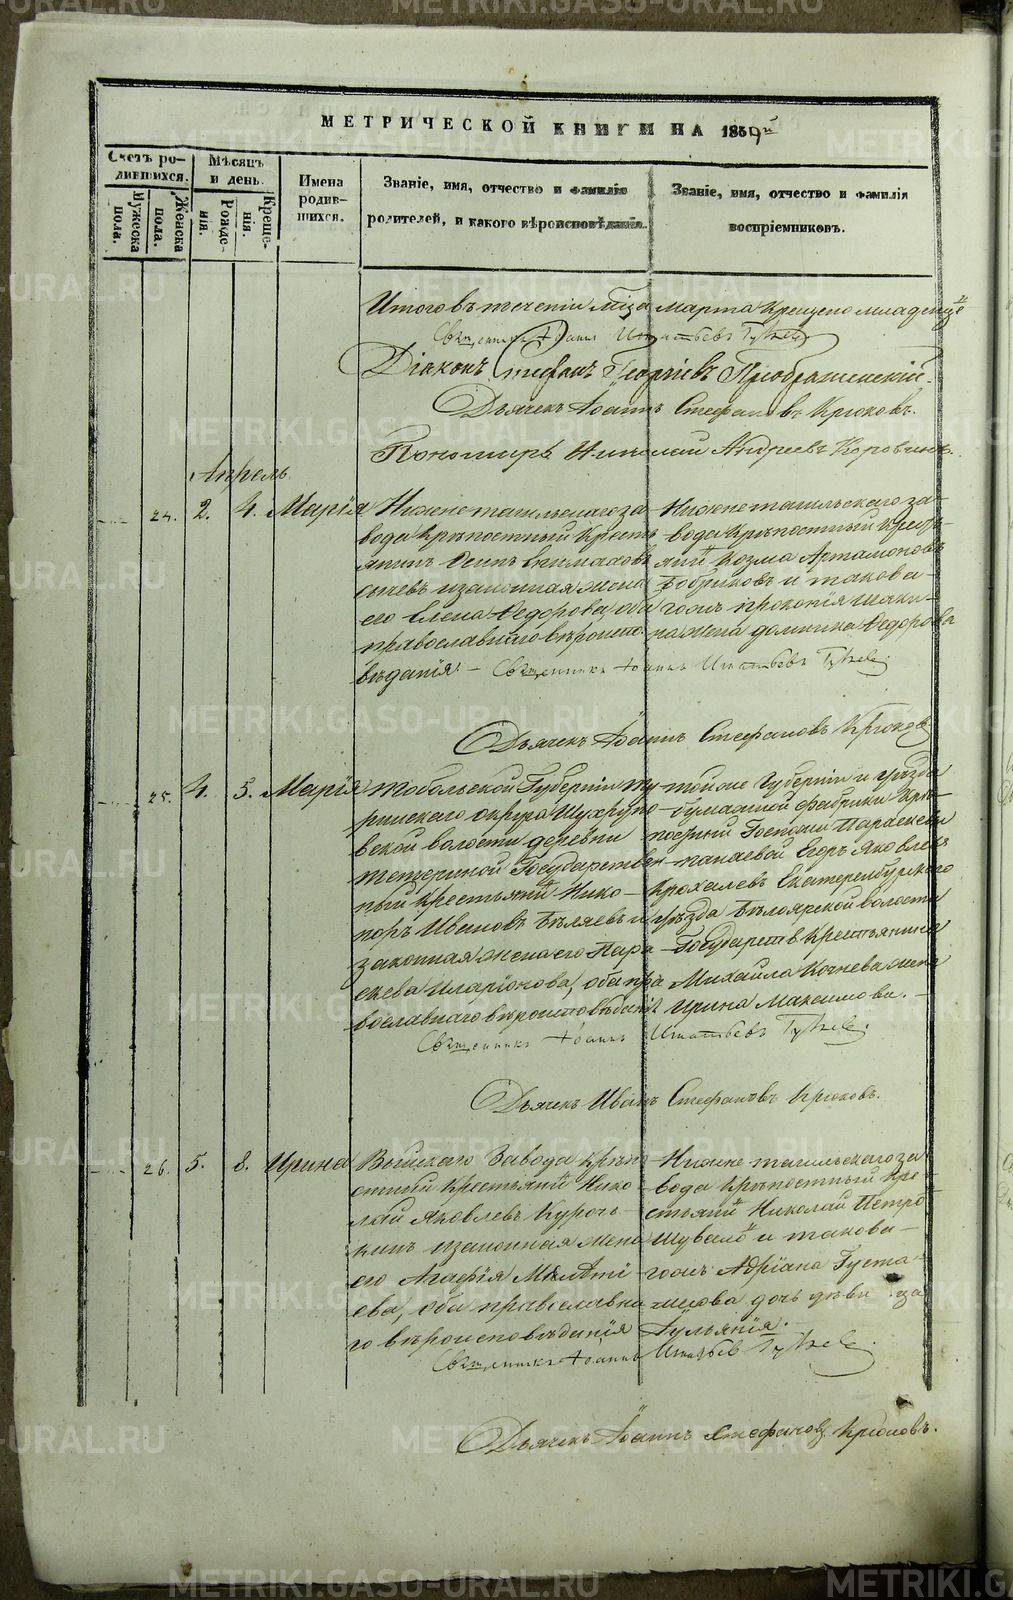 МЕТРИЧЕСКОЙ КНИГИ НА 1859й
Счетъ родившихся.
Мужеска пола.
Женска пола.
Мѣсяцъ и день.
Рожденія.
Крещенія.
Имена родившихся.
Званіе, имя, отчество и фамилія родителей, и какого вѣроисповѣданія.
Званіе, имя, отчество и фамилія воспріемниковъ.
Итого въ теченіи марта крещено младенце
Священникъ Іоаннъ Игнатьевъ
Діаконъ Стефанъ Георгіевъ Преображенскій.
Дьячекъ Іоаннъ Стефановъ Крюковъ.
Пономарь Николай Андреевъ Коровинъ.
Апрель
24. 2. 4. Марія
Нижнетагильскаго за-
вода крѣпостный кресть-
янинъ Осипъ
сынъ и законная жена
его Елена Федорова, оба
православнаго вѣроиспо-
вѣданія.
Нижнетагильскаго за-
вода крѣпостный кресть-
янинъ Козма Артамоновъ
Бобриковъ и такова-
гожъ Прокопія
жена Домнина Федорова
Священникъ Іоаннъ Игнатьевъ
Дьячекъ Іоаннъ Стефановъ Крюковъ
25. 4. 5. Марія
Тобольской Губерніи Ту-
ринскаго округа
вской волости деревни
Государствен-
ный крестьянинъ Нико-
норъ Ивановъ Бѣляевъ и
законная жена его Пара-
скева Иларіонова, оба пра
вославнаго вѣроисповѣданія
той же Губерніи и уѣзда
бумажной фабрики крѣ-
постный Госпожи Параскевы
Егоръ Яковлевъ
Крохалевъ Екатеринбургскаго
уѣзда Бѣлоярской волости
Государств. крестьянина
Михайла Кочнева жена
Ирина Максимова.
Священникъ Іоаннъ Игнатьевъ
Дьячекъ Иванъ Стефановъ Крюковъ.
26. 5. 8. Ирина
Выйскаго завода крѣпо-
стный крестьянинъ Нико-
лай Яковлевъ Куроч-
кинъ и законная жена
его Агафія
ева, оба православна-
го вѣроисповѣданія
Нижнетагильскаго за
вода крѣпостный кре-
стьянинъ Николай Петро
Шуваловъ и такова-
гожъ Адріана Густа-
дочь дѣвица
Іуліянія.
Священникъ Іоаннъ Игнатьевъ
Дьячекъ Іоаннъ Стефановъ Крюковъ.
METRIKI.GASO-URAL.RU